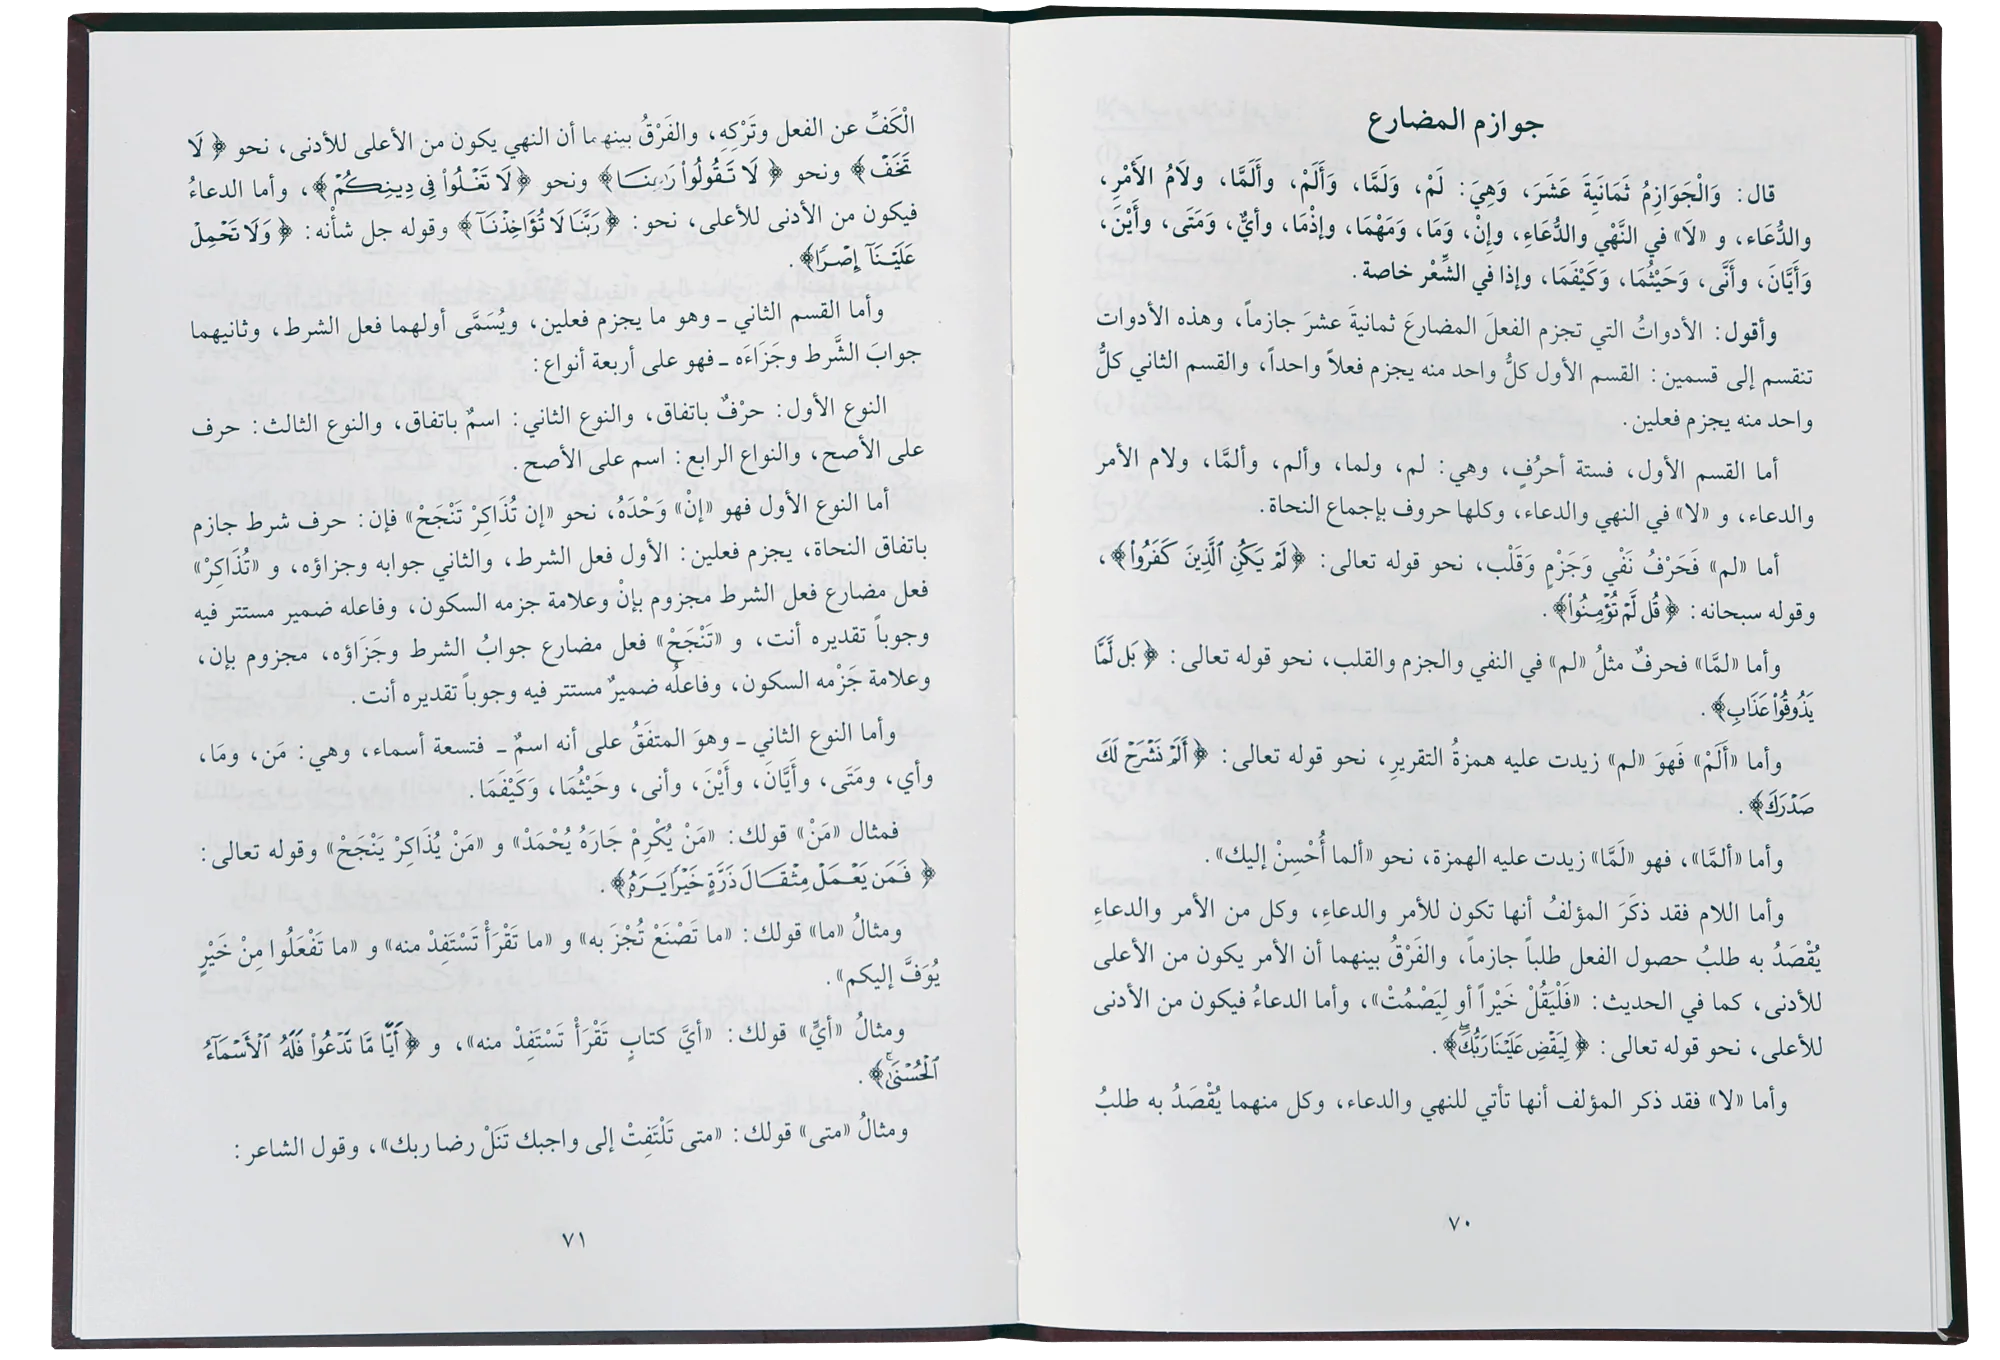 جوازم المضارع
قال: وَالْجَوَازِمُ ثَمَانِيَةَ عَشَرَ، وَهِيَ: لَمْ، وَلَمَّا، وَأَلَمْ، وأَلَمَّا، ولَامُ الأَمْرِ،
والدُّعَاء، و «لَا» في النَّهْي والدُّعَاءِ، وإنْ، وَمَا، وَمَهْمَا، وإذْمَا، وأيٌّ، وَمَتَى، وأَيْنَ،
وَأَيَّانَ، وأَنَّى، وَحَيْثُمَا، وَكَيْفَمَا، وإذا في الشِّعْر خاصة.
وأقول: الأدواتُ التي تجزم الفعلَ المضارعَ ثمانيةَ عشرَ جازماً، وهذه الأدوات
تنقسم إلى قسمين: القسم الأول كلُّ واحد منه يجزم فعلاً واحداً، والقسم الثاني كلُّ
واحد منه يجزم فعلين.
أما القسم الأول، فستة أحرُفٍ، وهي: لم، ولما، وألم، وألمَّا، ولام الأمر
والدعاء، و «لا» في النهي والدعاء، وكلها حروف بإجماع النحاة.
أما «لم» فَحَرْفُ نَفْي وَجَزْمٍ وَقَلْب، نحو قوله تعالى: ﴿لَمْ يَكُنِ ٱلَّذِينَ كَفَرُوا۟﴾،
وقوله سبحانه: ﴿قُل لَّمْ تُؤْمِنُوا۟﴾.
وأما «لمَّا» فحرفٌ مثلُ «لم» في النفي والجزم والقلب، نحو قوله تعالى: ﴿بَل لَّمَّا
يَذُوقُوا۟ عَذَابِ﴾.
وأما «أَلَمْ» فَهوَ «لم» زيدت عليه همزةُ التقريرِ، نحو قوله تعالى: ﴿أَلَمْ نَشْرَحْ لَكَ
صَدْرَكَ﴾.
وأما «ألمَّا»، فهو «لَمَّا» زيدت عليه الهمزة، نحو «ألما أُحْسِنْ إليك».
وأما اللام فقد ذكَرَ المؤلفُ أنها تكون للأمر والدعاءِ، وكل من الأمر والدعاءِ
يُقْصَدُ به طلبُ حصول الفعل طلباً جازماً، والفَرْقُ بينهما أن الأمر يكون من الأعلى
للأدنى، كما في الحديث: «فَلْيَقُلْ خَيْراً أو لِيَصْمُتْ»، وأما الدعاءُ فيكون من الأدنى
للأعلى، نحو قوله تعالى: ﴿لِيَقْضِ عَلَيْنَا رَبُّكَ﴾.
وأما «لا» فقد ذكر المؤلف أنها تأتي للنهي والدعاء، وكل منهما يُقْصَدُ به طلبُ
٧٠
الْكَفِّ عن الفعل وتَرْكِهِ، والفَرْقُ بينهما أن النهي يكون من الأعلى للأدنى، نحو ﴿لَا
تَخَفْ﴾ ونحو ﴿لَا تَقُولُوا۟ رَٰعِنَا﴾ ونحو ﴿لَا تَغْلُوا۟ فِى دِينِكُمْ﴾، وأما الدعاءُ
فيكون من الأدنى للأعلى، نحو: ﴿رَبَّنَا لَا تُؤَاخِذْنَآ﴾ وقوله جل شأنْه: ﴿وَلَا تَحْمِلْ
عَلَيْنَآ إِصْرًا﴾.
وأما القسم الثاني ـ وهو ما يجزم فعلين، ويُسَمَّى أولهما فعل الشرط، وثانيهما
جوابَ الشَّرط وجَزَاءَه ـ فهو على أربعة أنواع:
النوع الأول: حرْفٌ باتفاق، والنوع الثاني: اسمٌ باتفاق، والنوع الثالث: حرف
على الأصح، والنواع الرابع: اسم على الأصح.
أما النوع الأول فهو «إنْ» وَحْدَهُ، نحو «إن تُذَاكِرْ تَنْجَحْ» فإن: حرف شرط جازم
باتفاق النحاة، يجزم فعلين: الأول فعل الشرط، والثاني جوابه وجزاؤه، و «تُذَاكِرْ»
فعل مضارع فعل الشرط مجزوم بإنْ وعلامة جزمه السكون، وفاعله ضمير مستتر فيه
وجوباً تقديره أنت، و «تَنْجَحْ» فعل مضارع جوابُ الشرط وجَزَاؤه، مجزوم بإن،
وعلامة جَزْمه السكون، وفاعلُه ضميرٌ مستتر فيه وجوباً تقديره أنت.
وأما النوع الثاني ـ وهوَ المتفَقُ على أنه اسمٌ ـ فتسعة أسماء، وهي: مَن، ومَا،
وأي، ومَتَى، وأَيَّانَ، وأَيْنَ، وأنى، وحَيْثُمَا، وَكَيْفَمَا.
فمثال «مَنْ» قولك: «مَنْ يُكْرِمْ جَارَهُ يُحْمَدْ» و «مَنْ يُذَاكِرْ يَنْجَحْ» وقوله تعالى:
﴿فَمَن يَعْمَلْ مِثْقَالَ ذَرَّةٍ خَيْرًا يَرَهُۥ﴾.
ومثالُ «ما» قولك: «ما تَصْنَعْ تُجْزَ به» و «ما تَقْرَأْ تَسْتَفِدْ منه» و «ما تَفْعَلُوا مِنْ خَيْرٍ
يُوَفَّ إليكم».
ومثالُ «أيٍّ» قولك: «أيَّ كتابٍ تَقْرَأْ تَسْتَفِدْ منه»، و ﴿أَيًّا مَّا تَدْعُوا۟ فَلَهُ ٱلْأَسْمَآءُ
ٱلْحُسْنَىٰ﴾.
ومثالُ «متى» قولك: «متى تَلْتَفِتْ إلى واجبك تَنَلْ رضا ربك»، وقول الشاعر:
٧١